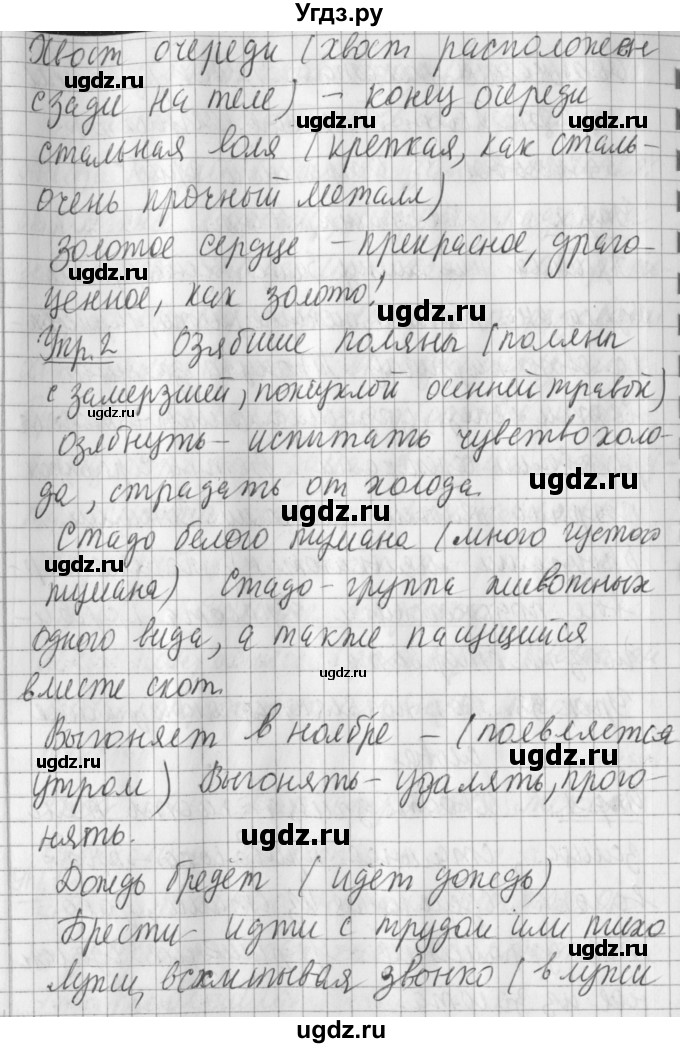 Угдз.ру
Хвост очереди (хвост расположен
сзади на теле) – конец очереди
стальная воля (крепкая, как сталь–
очень прочный металл)
Золотое сердце – прекрасное, драго-
ценное, как золото!
Упр.2 Озябшие поляны (поляны
с замерзшей, пожухлой осенней травой)
озябнуть – испытать чувство холо-
да, страдать от холода.
Стадо белого тумана (много густого
тумана) Стадо – группа животных
одного вида, а также пасущийся
вместе скот.
Выгоняет в ноябре – (появляется
утром) Выгонять – удалять, прого-
нять.
Дождь бредёт (идёт дождь)
Брести – идти с трудом или тихо
Лужи, всхлипывая звонко (в лужи
ugdz.ru